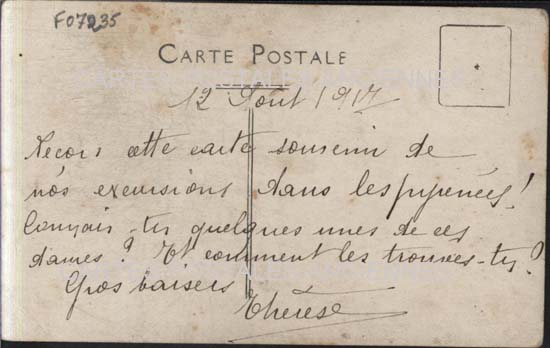 F07235
CARTE POSTALE
12 Aout 1917
Recois cette carte souvenir de
nos excursions dans les pyrenées!
Connais-tu quelques unes de ces
dames? Et comment les trouves-tu?
Gros baisers
Thérèse